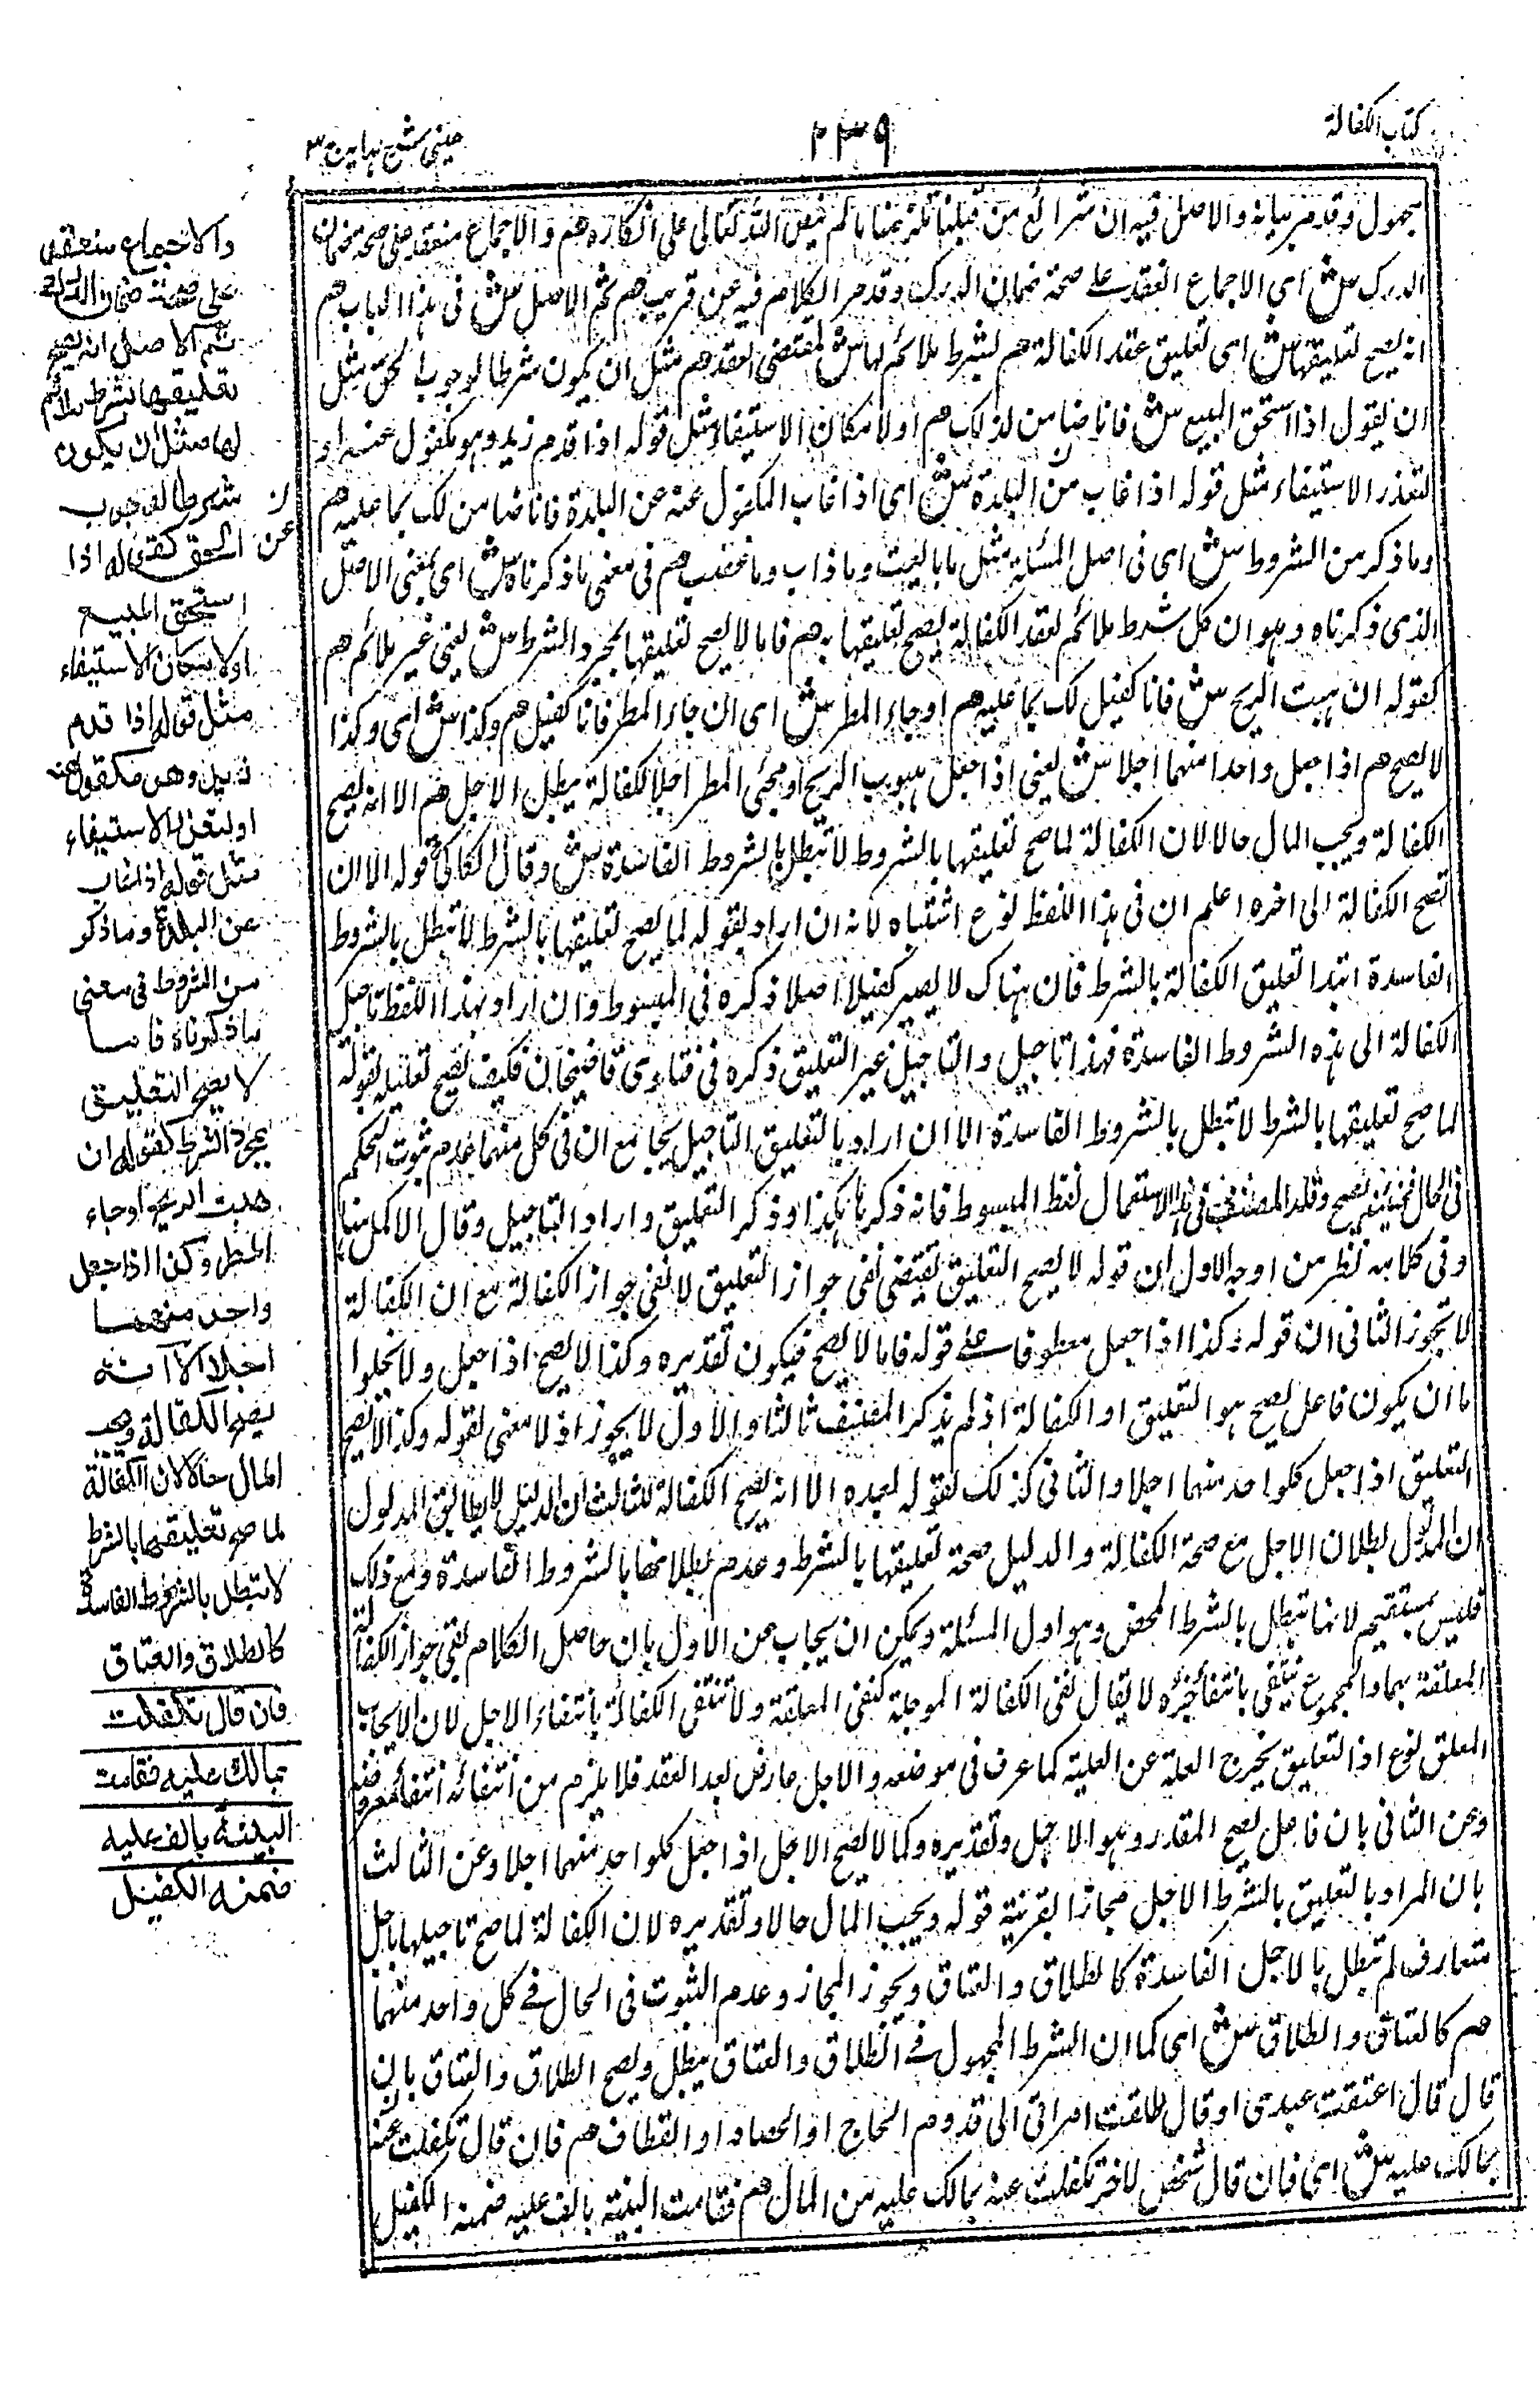 كتاب الكفالة
٢٣٩
عيني شرح هداية ج ٣
مجهول وقد مر بيانه والاصل فيه ان شرائع من قبلنا تلزمنا ما لم ينص الله تعالى على انكاره هم والاجماع منعقد على صحة ضمان
الدرك ش اي الاجماع انعقد على صحة ضمان الدرك وقد مر الكلام فيه عن قريب هم ثم الاصل ش في هذا الباب هم
انه يصح تعليقها ش اى تعليق عقد الكفالة هم بشرط ملائم لها ش لمقتضى العقد هم مثل ان يكون شرطا لوجوب الحق مثل
ان يقول اذا استحق المبيع ش فانا ضامن لذلك هم او لامكان الاستيفاء مثل قوله اذا قدم زيد وهو مكفول عنه او
لتعذر الاستيفاء مثل قوله اذا غاب من البلدة ش اى اذا غاب المكفول عنه عن البلدة فانا ضامن لك بما عليه هم
وما ذكر من الشروط ش اى فى اصل المسئلة مثل ما بايعت وما ذاب وما غصب هم فى معنى ما ذكرناه ش اى بمعنى الاصل
الذى ذكرناه وهو ان كل شرط ملائم لعقد الكفالة يصح تعليقها به هم فاما لا يصح تعليقها بمجرد الشرط ش يعنى غير ملائم هم
كقوله ان هبت الريح ش فانا كفيل لك بما عليه هم او جاء المطر ش اى ان جاء المطر فانا كفيل هم وكذا ش اى وكذا
لا يصح هم اذا جعل واحدا منهما اجلا ش يعنى اذا جعل هبوب الريح او مجئى المطر اجلا لكفالة يبطل الاجل هم الا انه يصح
الكفالة ويجب المال حالا لان الكفالة لما صح تعليقها بالشروط لا تبطل بالشروط الفاسدة ش وقال الكاكى قوله الا ان
تصح الكفالة الى اخره اعلم ان فى هذا اللفظ نوع اشتباه لانه ان اراد بقوله لما يصح تعليقها بالشرط لا تبطل بالشروط
الفاسدة ابتدا تعليق الكفالة بالشرط فان هناك لا يصير كفيلا اصلا ذكره فى المبسوط وان اراد بهذا اللفظ تاجيل
الكفالة الى هذه الشروط الفاسدة فهذا تاجيل والتاجيل غير التعليق ذكره فى فتاوى قاضيخان فكيف يصح تعليله بقوله
لما صح تعليقها بالشرط لا تبطل بالشروط الفاسدة الا ان اراد بالتعليق التاجيل بجامع ان فى كل منهما عدم ثبوت الحكم
فى الحال فحينئذ يصح وقلد المصنف فى هذا الاستعمال لفظ المبسوط فانه ذكرها هكذا وذكر التعليق واراد التاجيل وقال الاكمل هنا
وفى كلامه نظر من اوجه الاول ان قوله لا يصح التعليق يقتضى نفى جواز التعليق لا نفى جواز الكفالة مع ان الكفالة
لا تجوز الثانى ان قوله وكذا اذا جعل معطوفا على قوله فاما لا يصح فيكون تقديره وكذا لا يصح اذا جعل ولا يخلوا
اما ان يكون فاعل يصح هو التعليق او الكفالة اذ لم يذكر المصنف ثالثا والاول لا يجوز اذ لا معنى لقوله وكذا لا يصح
التعليق اذا جعل كلواحد منهما اجلا والثانى كذلك لقوله بعده الا انه يصح الكفالة الثالث ان الدليل لا يطابق المدلول
ان المدلول بطلان الاجل مع صحة الكفالة والدليل صحة تعليقها بالشرط وعدم بطلانها بالشروط الفاسدة ومع ذلك
فليس بمستقيم لانها تبطل بالشرط المحض وهو اول المسئلة ويمكن ان يجاب عن الاول بان حاصل الكلام نفى جواز الكفالة
المعلقة بهما والمجموع ينتفى بانتفاء جزئه لا يقال نفى الكفالة الموجلة كنفى المعلقة ولا تنتفى الكفالة بانتفاء الاجل لان الايجاب
المعلق نوع اذ التعليق يخرج العلة عن العلية كما عرف فى موضعه والاجل عارض بعد العقد فلا يلزم من انتفائه انتفاء معروضه
وعن الثانى بان فاعل يصح المقدر وهو الاجل وتقديره وكما لا يصح الاجل اذا جعل كلواحد منهما اجلا وعن الثالث
بان المراد بالتعليق بالشرط الاجل مجازا لقرينة قوله ويجب المال حالا وتقديره لان الكفالة لما صح تاجيلها باجل
متعارف لم تبطل بالاجل الفاسدة كالطلاق والعتاق ويجوز المجاز وعدم الثبوت فى الحال فى كل واحد منهما
هم كالعتاق والطلاق ش اى كما ان الشرط المجهول فى الطلاق والعتاق يبطل ويصح الطلاق والعتاق بان
قال قال اعتقت عبدى او قال طلقت امراتى الى قدوم الحاج او الحصاد او القطاف هم فان قال تكفلت عنه
بمالك عليه ش اى فان قال شخص لاخر تكفلت عنه بمالك عليه من المال هم فقامت البينة بالف عليه ضمنه الكفيل
والاجماع منعقد
على صحة ضمان الدرك
ثم الاصل انه يصح
تعليقها بشرط ملائم
لها مثل ان يكون
شرطا لوجوب
الحق كقوله اذا
استحق المبيع
او لامكان الاستيفاء
مثل قوله اذا قدم
زيد وهو مكفول عنه
او لتعذر الاستيفاء
مثل قوله اذا غاب
عن البلدة وما ذكر
من الشروط فى معنى
ما ذكرناه فاما
لا يصح التعليق
بمجرد الشرط كقوله ان
هبت الريح او جاء
المطر وكذا اذا جعل
واحد منهما
اجلا الا انه
يصح الكفالة ويجب
المال حالا لان الكفالة
لما صح تعليقها بالشرط
لا تبطل بالشروط الفاسدة
كالطلاق والعتاق
فان قال تكفلت
بمالك عليه فقامت
البينة بالف عليه
ضمنه الكفيل